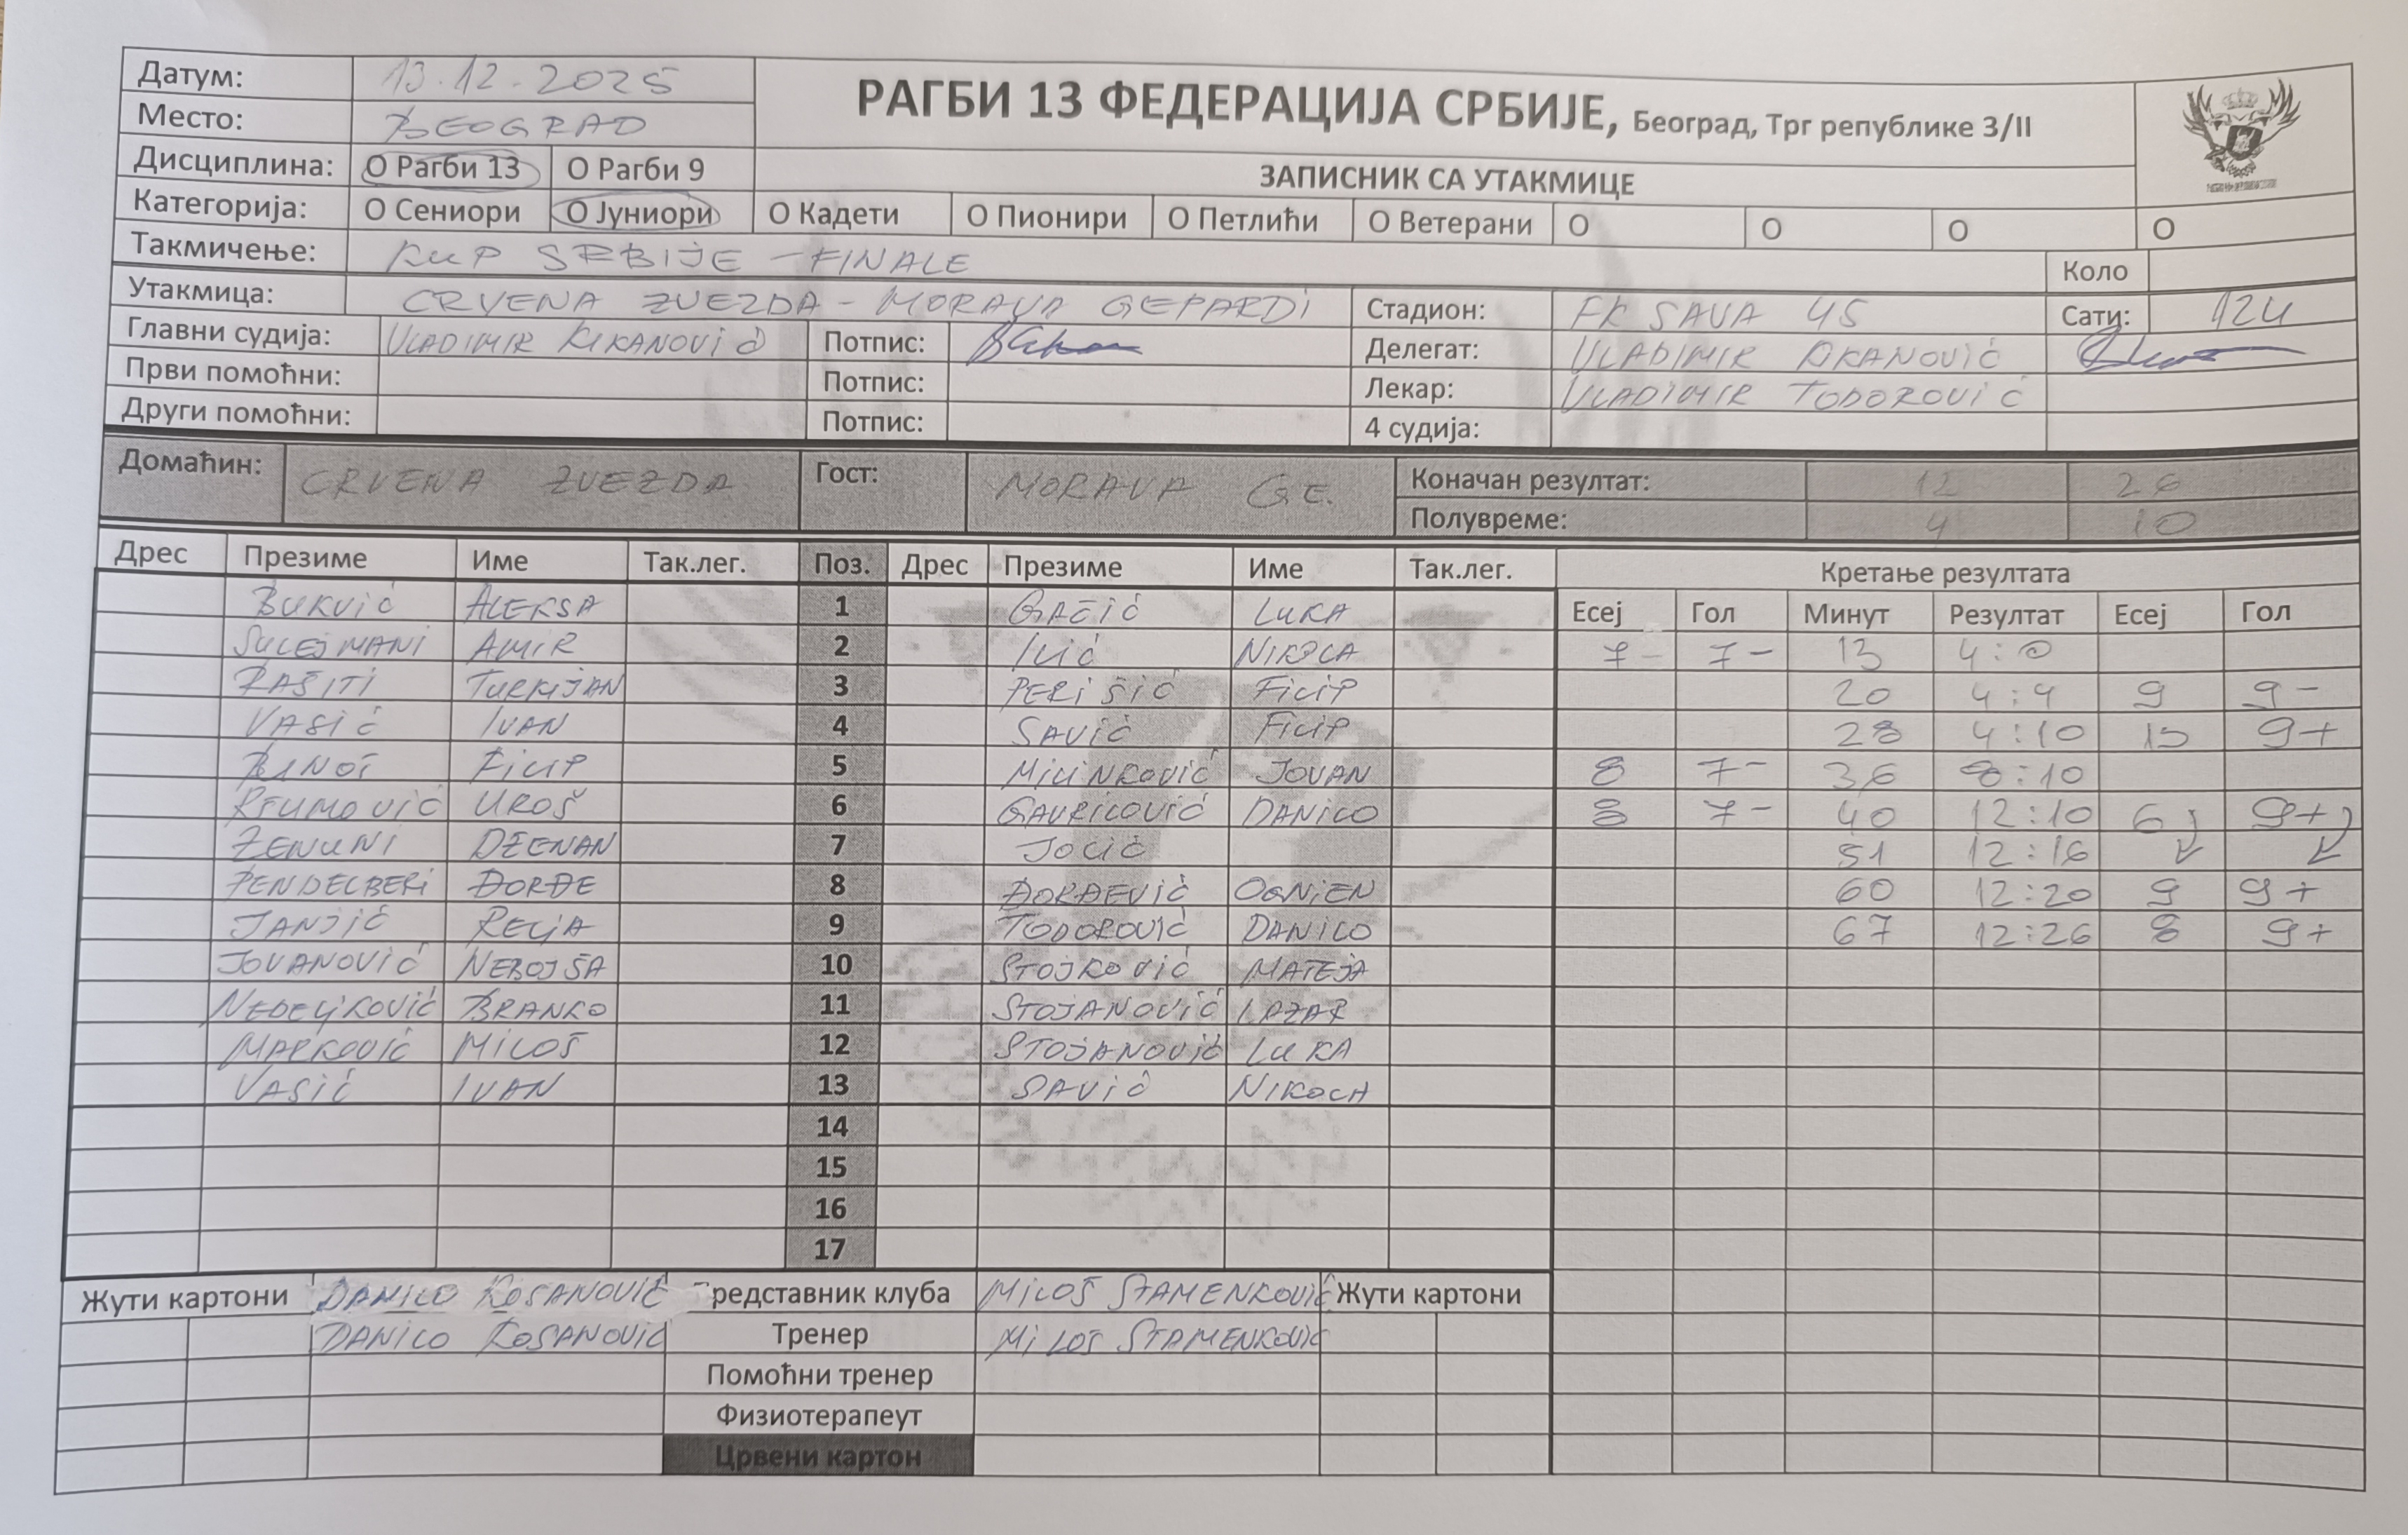 Датум: 13.12.2025
РАГБИ 13 ФЕДЕРАЦИЈА СРБИЈЕ, Београд, Трг републике 3/II
Место: BEOGRAD
Дисциплина: O Рагби 13 O Рагби 9
ЗАПИСНИК СА УТАКМИЦЕ
Категорија: O Сениори O Јуниори O Кадети O Пионири O Петлићи O Ветерани O O O O
Такмичење: KUP SRBIJE - FINALE Коло
Утакмица: CRVENA ZVEZDA - MORAVA GEPARDI Стадион: FK SAVA 45 Сати: 12h
Главни судија: VLADIMIR KIKANOVIĆ Потпис: Делегат: VLADIMIR KIKANOVIĆ
Први помоћни: Потпис: Лекар: VLADIMIR TODOROVIĆ
Други помоћни: Потпис: 4 судија:
Домаћин: CRVENA ZVEZDA Гост: MORAVA GE. Коначан резултат: 12 26
Полувреме: 4 10
Дрес Презиме Име Так.лег. Поз. Дрес Презиме Име Так.лег. Кретање резултата
Есеј Гол Минут Резултат Есеј Гол
BUKVIĆ ALEKSA 1 GAČIĆ LUKA
SULEJMANI AMIR 2 ILIĆ NIKOLA 7- 7- 13 4:0
RAŠITI TURKIJAN 3 PERIŠIĆ FILIP 20 4:4 9 9-
VASIĆ IVAN 4 SAVIĆ FILIP 28 4:10 13 9+
FILIP 5 MILINKOVIĆ JOVAN 8 7- 36 8:10
UROŠ 6 GAVRILOVIĆ DANILO 8 7- 40 12:10 6 9+
ZENUNI DŽENAN 7 JOCIĆ 51 12:16
PENDELBERI ĐORĐE 8 ĐORĐEVIĆ OGNJEN 60 12:20 9 9+
JANJIĆ RELJA 9 TODOROVIĆ DANILO 67 12:26 8 9+
JOVANOVIĆ NEBOJŠA 10 STOJKOVIĆ MATEJA
NEDELJKOVIĆ BRANKO 11 STOJANOVIĆ LAZAR
MARKOVIĆ MILOŠ 12 STOJANOVIĆ LUKA
VASIĆ IVAN 13 SAVIĆ NIKOLA
14
15
16
17
Жути картони DANILO KOSANOVIĆ редставник клуба MILOŠ STAMENKOVIĆ Жути картони
DANILO KOSANOVIĆ Тренер MILOŠ STAMENKOVIĆ
Помоћни тренер
Физиотерапеут
Црвени картон